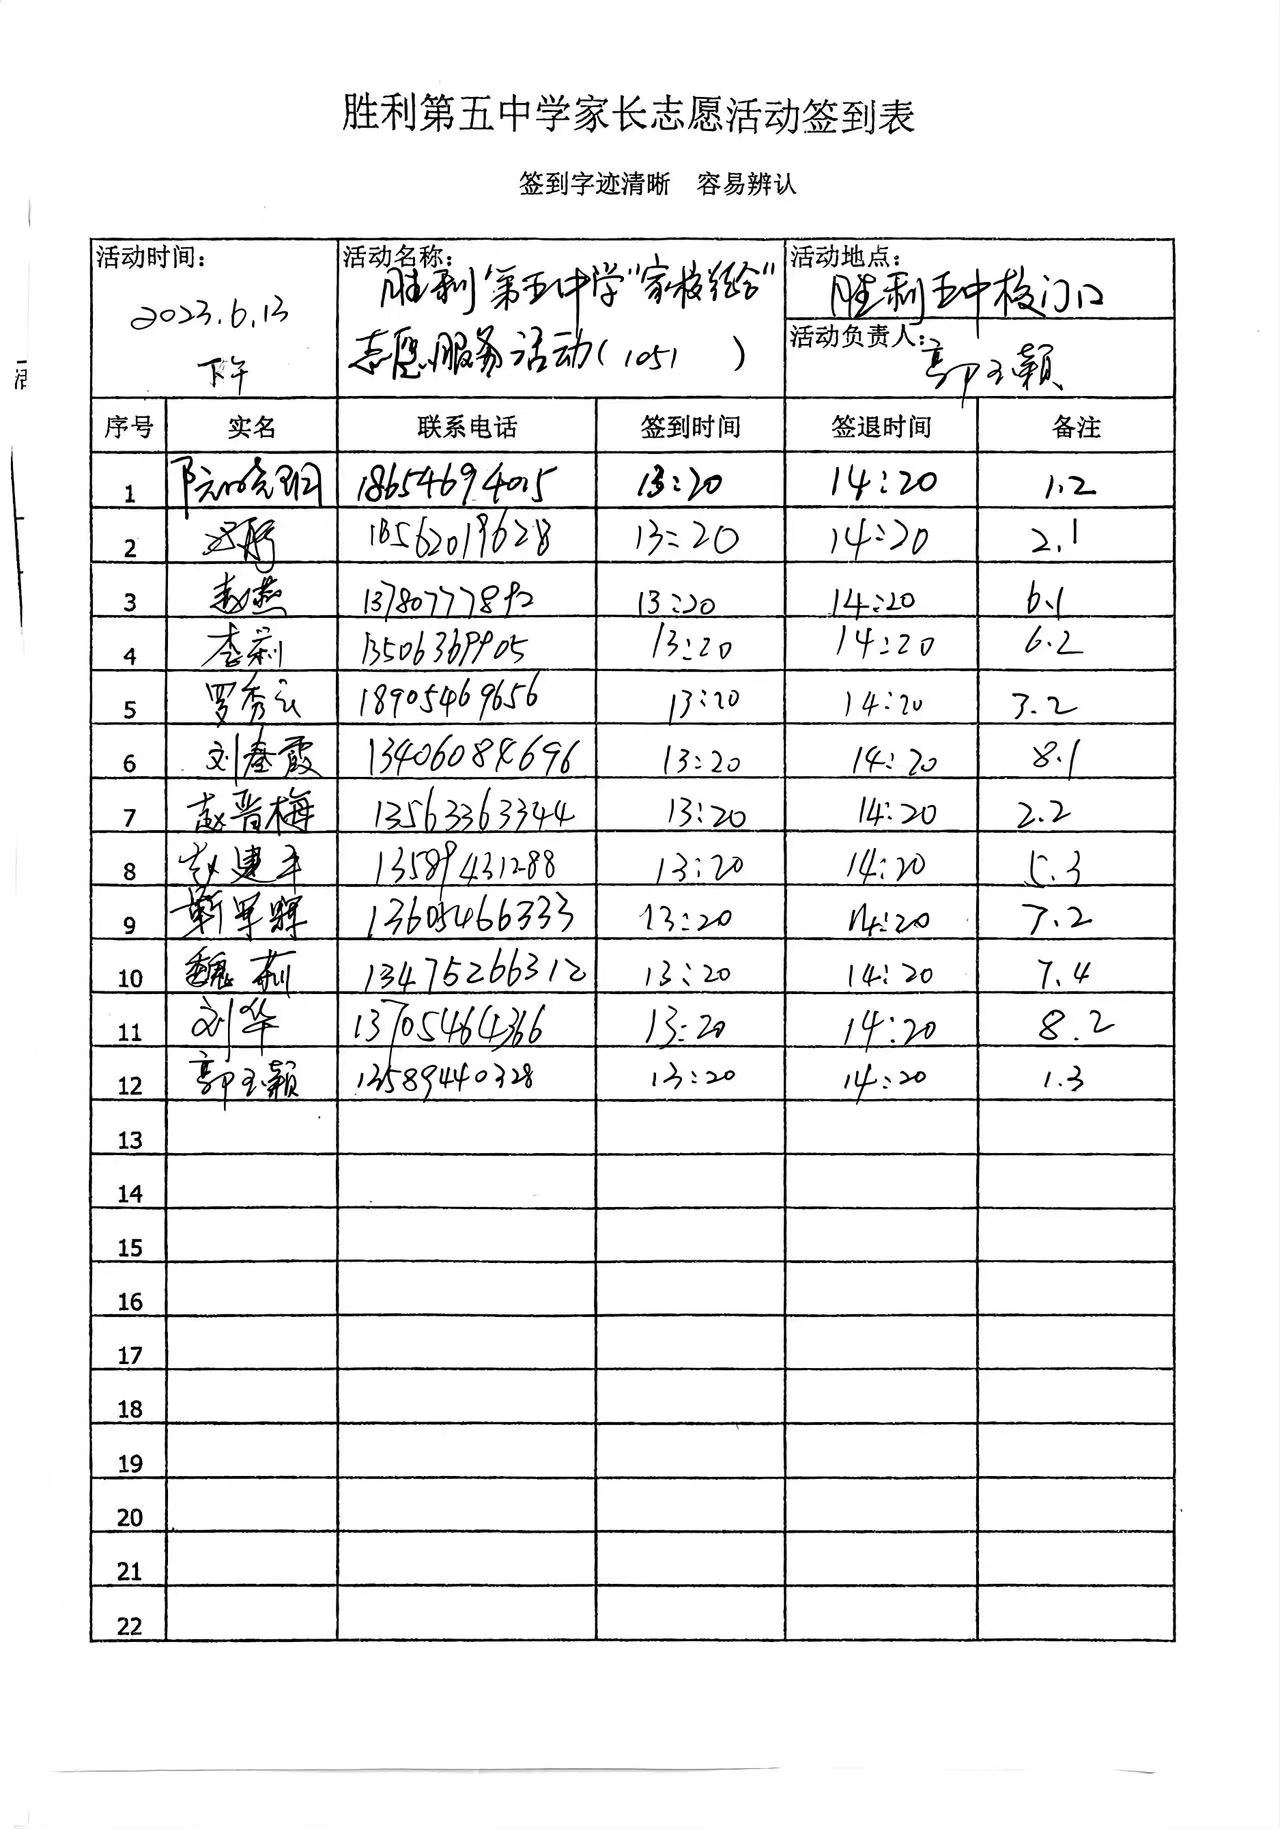 胜利第五中学家长志愿活动签到表
签到字迹清晰 容易辨认
活动时间: 2023.6.13 下午
活动名称: 胜利第五中学"家校结合"
志愿服务活动(1051 )
活动地点: 胜利五中校门口
活动负责人: 郭玉颖
序号 实名 联系电话 签到时间 签退时间 备注
1 18654694015 13:20 14:20 1.2
2 18562019628 13:20 14:20 2.1
3 赵燕 13780777892 13:20 14:20 6.1
4 李莉 13506369905 13:20 14:20 6.2
5 罗秀云 18905469656 13:20 14:20 3.2
6 刘春霞 13406084696 13:20 14:20 8.1
7 赵晋梅 13563363344 13:20 14:20 2.2
8 赵建平 13589431288 13:20 14:20 5.3
9 靳军辉 13605466333 13:20 14:20 7.2
10 魏莉 13475266312 13:20 14:20 7.4
11 刘华 13705464366 13:20 14:20 8.2
12 郭玉颖 13589440328 13:20 14:20 1.3
13
14
15
16
17
18
19
20
21
22